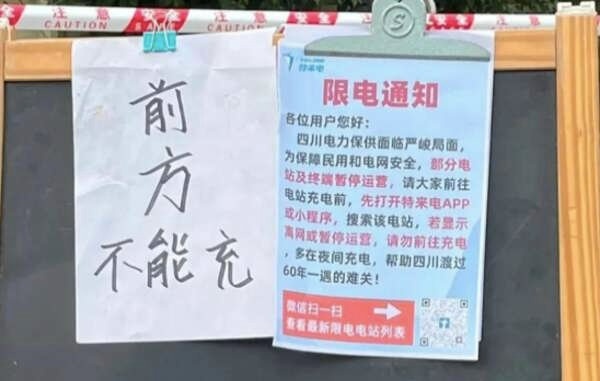 注意安全 注意安全
CAUTION CAUTION CAUTION
前
方
不能充
S
特来电
限电通知
各位用户您好：
四川电力保供面临严峻局面，
为保障民用和电网安全，部分电
站及终端暂停运营，请大家前往
电站充电前，先打开特来电APP
或小程序，搜索该电站，若显示
离网或暂停运营，请勿前往充电
，多在夜间充电，帮助四川渡过
60年一遇的难关！
微信扫一扫
查看最新限电电站列表